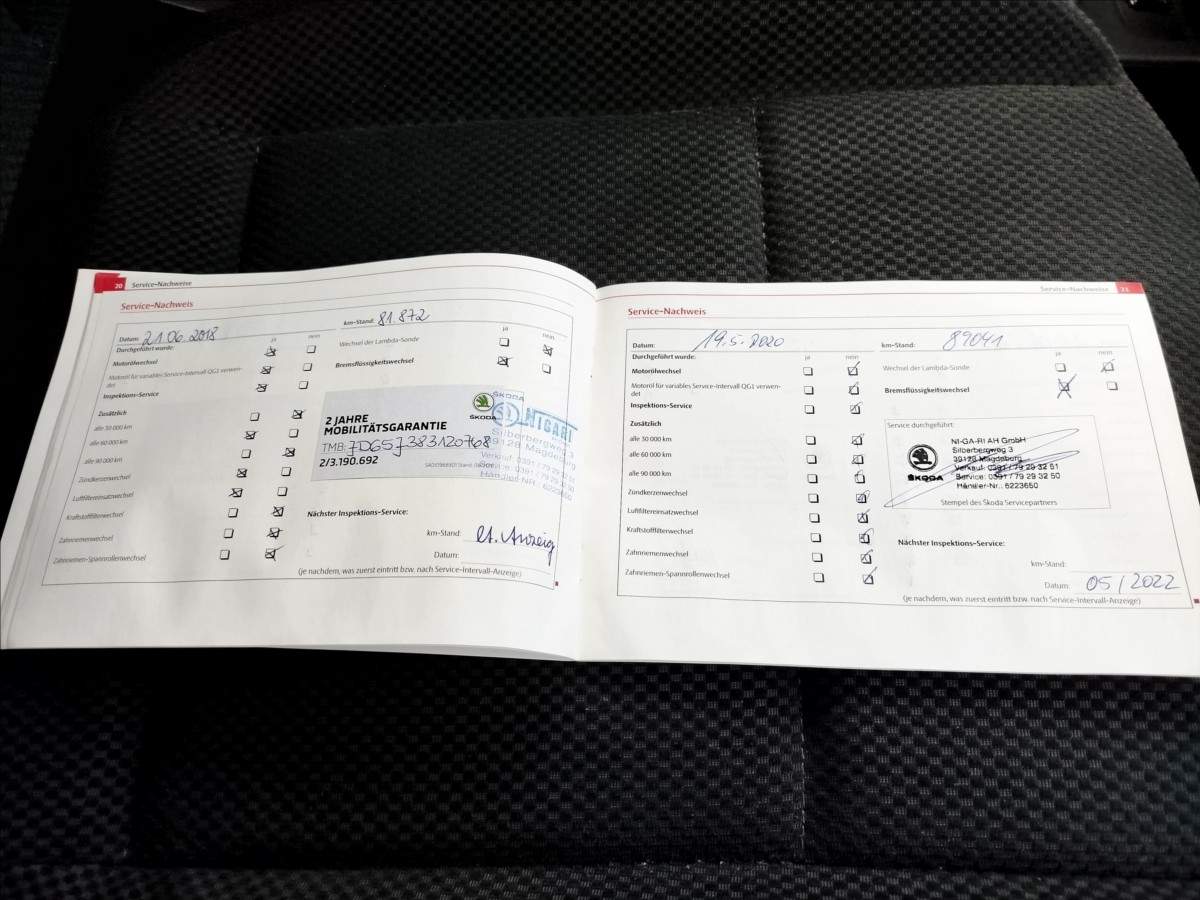 20 Service-Nachweise
Service-Nachweis
Datum: 21.06.2018
km-Stand: 81.872
Durchgeführt wurde:
ja nein
ja nein
Motorölwechsel
Wechsel der Lambda-Sonde
Motoröl für variables Service-Intervall QG1 verwen-
det
Bremsflüssigkeitswechsel
Inspektions-Service
Zusätzlich
alle 30 000 km
alle 60 000 km
alle 90 000 km
Zündkerzenwechsel
Luftfiltereinsatzwechsel
Kraftstofffilterwechsel
Zahnriemenwechsel
Zahnriemen-Spannrollenwechsel
2 JAHRE
MOBILITÄTSGARANTIE
ŠKODA
TMB: 7DG5J383120768
2/3.190.692
NIGARI
Silberbergweg 3
39128 Magdeburg
Verkauf: 0391 / 79
0391 / 79 29
Händler NR.: 6223650
Nächster Inspektions-Service:
km-Stand: lt. Anzeig
Datum:
(je nachdem, was zuerst eintritt bzw. nach Service-Intervall-Anzeige)
Service-Nachweise 21
Service-Nachweis
Datum: 19.5.2020
km-Stand: 89041
Durchgeführt wurde:
ja nein
ja nein
Motorölwechsel
Wechsel der Lambda-Sonde
Motoröl für variables Service-Intervall QG1 verwen-
det
Bremsflüssigkeitswechsel
Inspektions-Service
Zusätzlich
alle 30 000 km
alle 60 000 km
alle 90 000 km
Zündkerzenwechsel
Luftfiltereinsatzwechsel
Kraftstofffilterwechsel
Zahnriemenwechsel
Zahnriemen-Spannrollenwechsel
Service durchgeführt:
ŠKODA
NI-GA-RI AH GmbH
Silberbergweg 3
39128 Magdeburg
Verkauf: 0391 / 79 29 32 61
Service: 0391 / 79 29 32 50
Händler-Nr.: 6223650
Stempel des Škoda Servicepartners
Nächster Inspektions-Service:
km-Stand:
Datum: 05/2022
(je nachdem, was zuerst eintritt bzw. nach Service-Intervall-Anzeige)